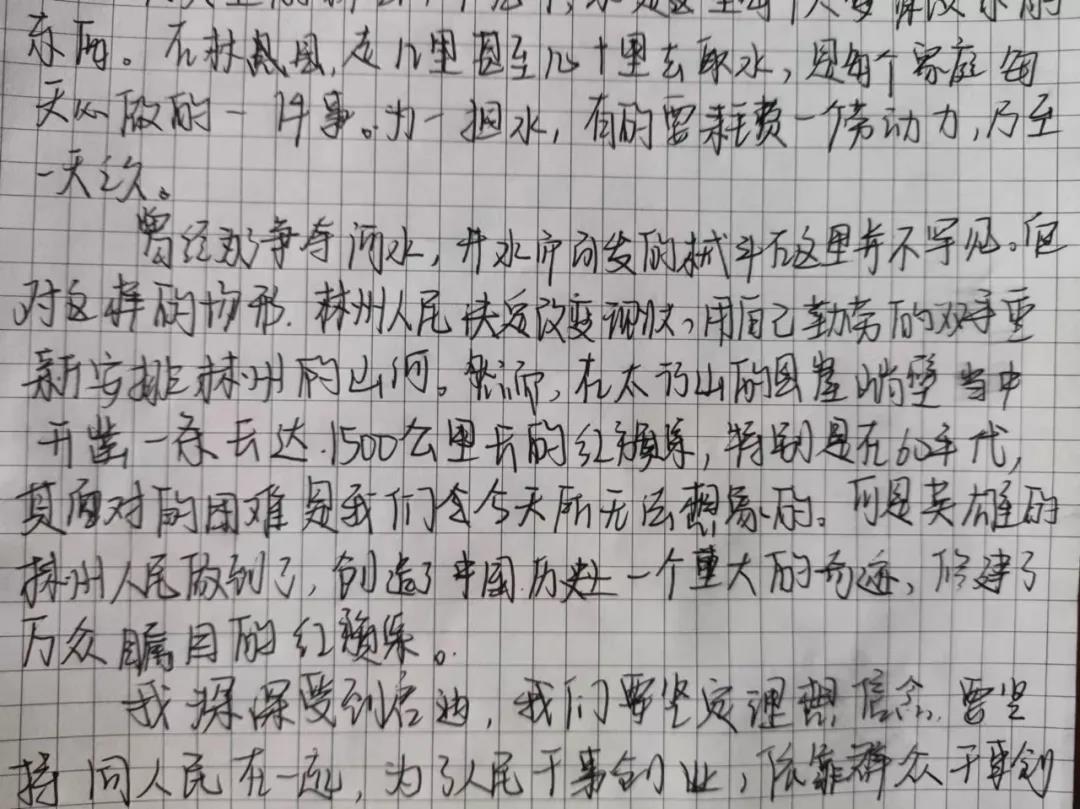 东西。在林县,走几里甚至几十里去取水,是每个家庭每
天必做的一件事。为一担水,有的要耗费一个劳动力,乃至
一天之久。
曾经为争夺河水,井水而引发的械斗在这里并不罕见。但
对这样的情形.林州人民决定改变现状,用自己勤劳的双手重
新安排林州的山河。然而,在太行山的悬崖峭壁当中
开凿一条长达1500公里长的红旗渠,特别是在60年代,
其面对的困难是我们今天所无法想象的。可是英雄的
林州人民做到了,创造了中国历史上一个重大的奇迹,修建了
万众瞩目的红旗渠。
我深深受到启迪,我们要坚定理想信念.要坚
持同人民在一起,为了人民干事创业,依靠群众干事创